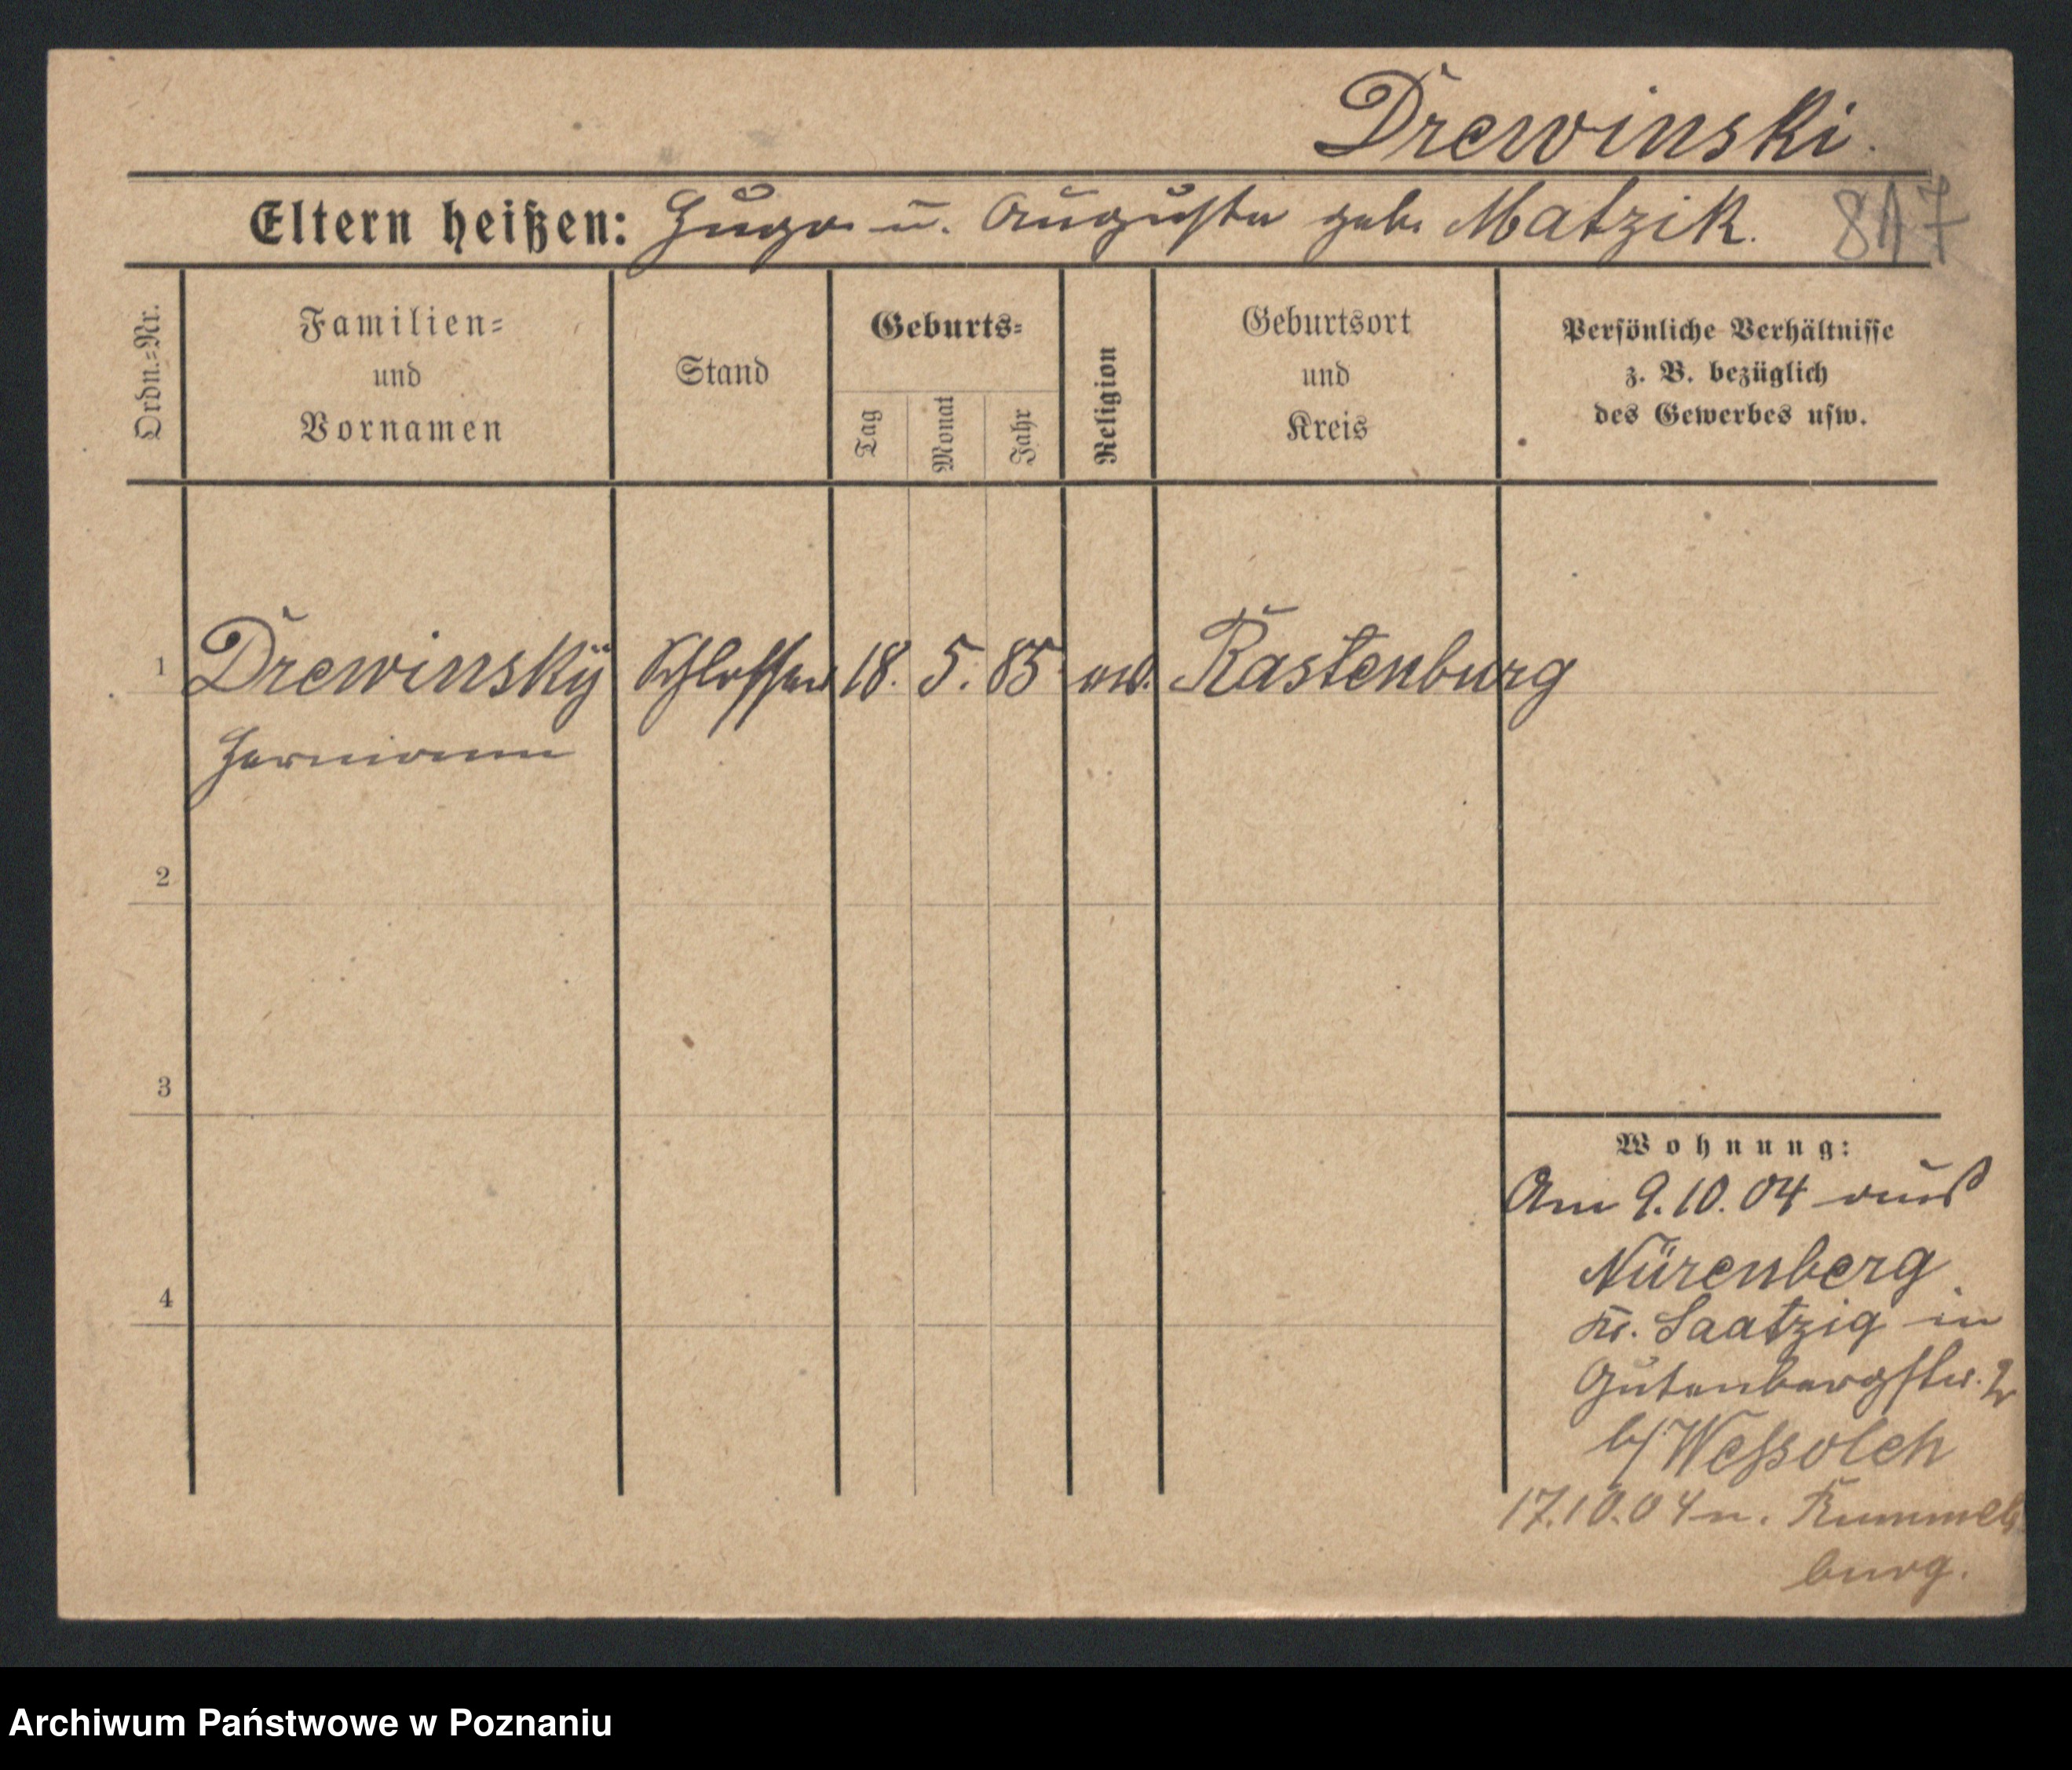 Drewinski.
Eltern heißen: Hugo u. Auguste geb. Matzik. 817
Ordn.=Nr.
Familien=
und
Vornamen
Stand
Geburts=
Tag
Monat
Jahr
Religion
Geburtsort
und
Kreis
Persönliche Verhältnisse
z. B. bezüglich
des Gewerbes usw.
1 Drewinsky Schlosser 18. 5. 85 ev. Rastenburg
Hermann
2
3
4
Wohnung:
Am 9.10.04 aus
Nürenberg
Kr. Saatzig in
Gutenbergstr.
b/Wessolek
17.10.04 n. Rummels
burg.
Archiwum Państwowe w Poznaniu